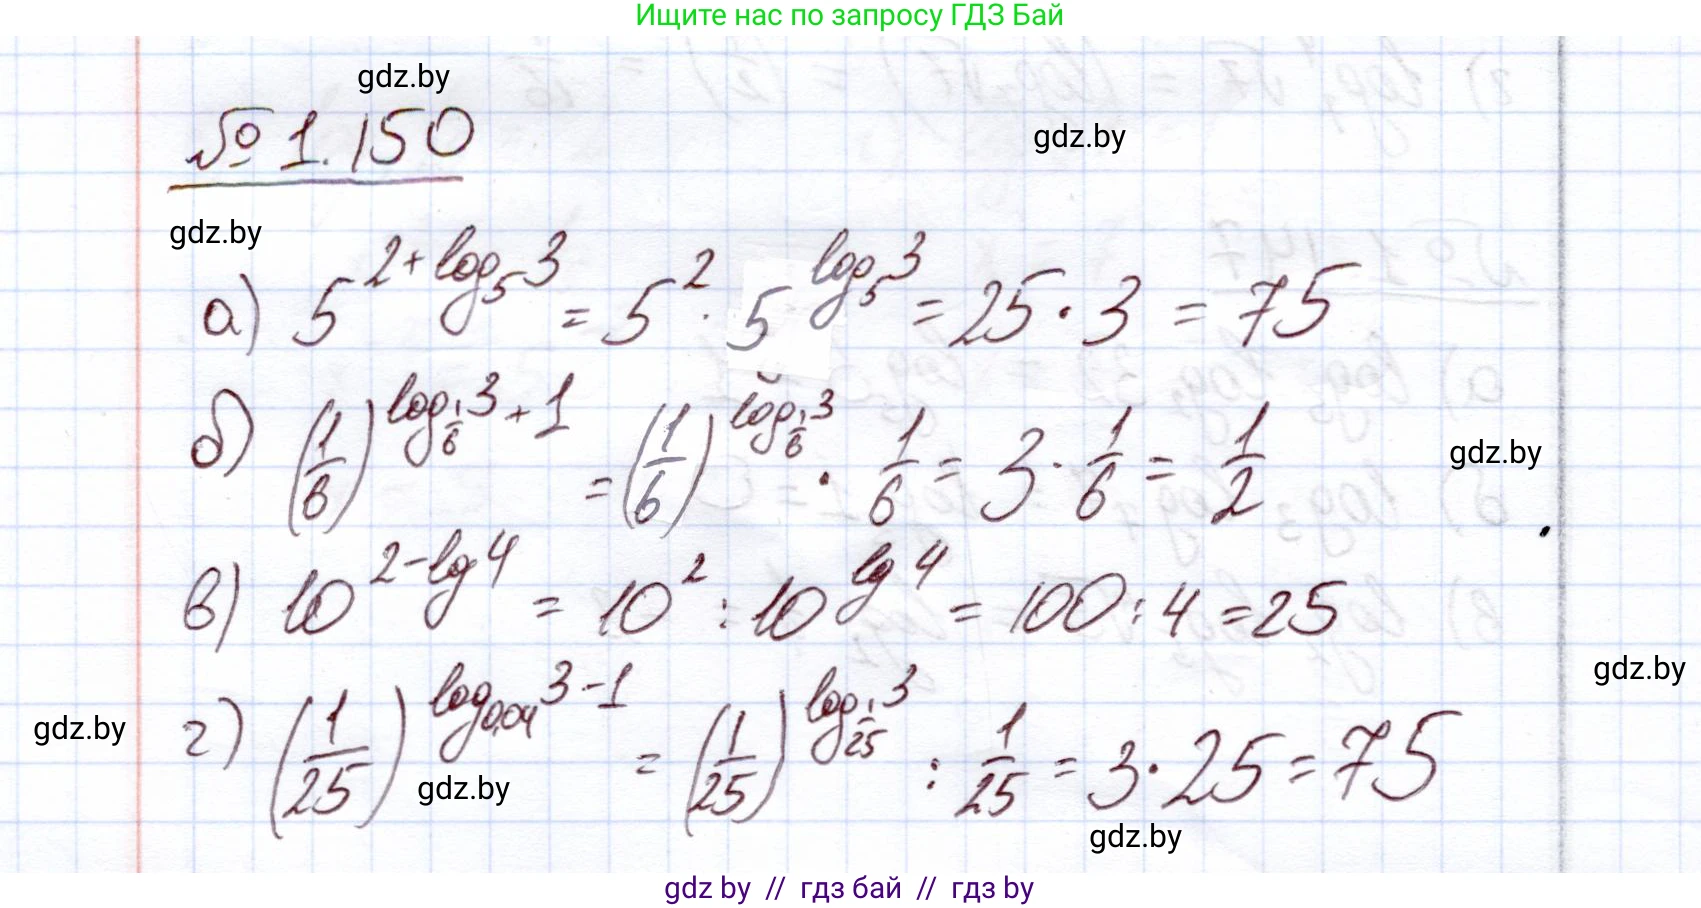 Ищите нас по запросу ГДЗ Бай
gdz.by
№ 1.150
gdz.by
gdz.by
а) 5^(2+log_5 3) = 5^2 · 5^(log_5 3) = 25 · 3 = 75
б) (1/6)^(log_(1/6) 3 + 1) = (1/6)^(log_(1/6) 3) · 1/6 = 3 · 1/6 = 1/2
gdz.by
в) 10^(2-lg 4) = 10^2 : 10^(lg 4) = 100 : 4 = 25
gdz.by
г) (1/25)^(log_(0,04) 3 - 1) = (1/25)^(log_(1/25) 3) : 1/25 = 3 · 25 = 75
gdz.by
gdz.by
gdz.by
gdz by // гдз бай // гдз by